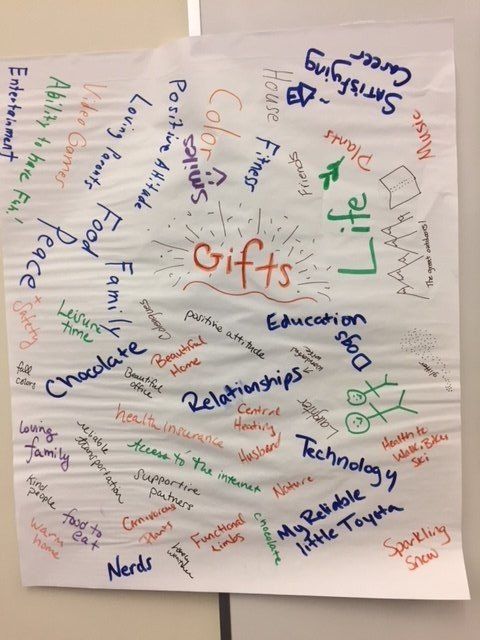 Satisfying
Career
House
Music
Plants
Friends
Fitness
Color
Smiles
Positive Attitude
Loving Parents
Video Games
Ability to have Fun!
Entertainment
Life
The great outdoors!
Gifts
Food
Family
Peace
+ Safety
Leisure
time
positive attitude
Education
Dogs
Beautiful
Home
Chocolate
Beautiful
office
fall
colors
Relationships
Laughter
glitter
Central
Heating
Husband
health insurance
Access to the internet
Technology
Health to
Walk, Bike,
Ski
loving
family
reliable
transportation
supportive
partners
Nature
kind
people
Warm
home
food to
eat
Carnivorous
Plants
Functional
Limbs
chocolate
My Reliable
little Toyota
Sparkling
Snow
Nerds
lovely
weather